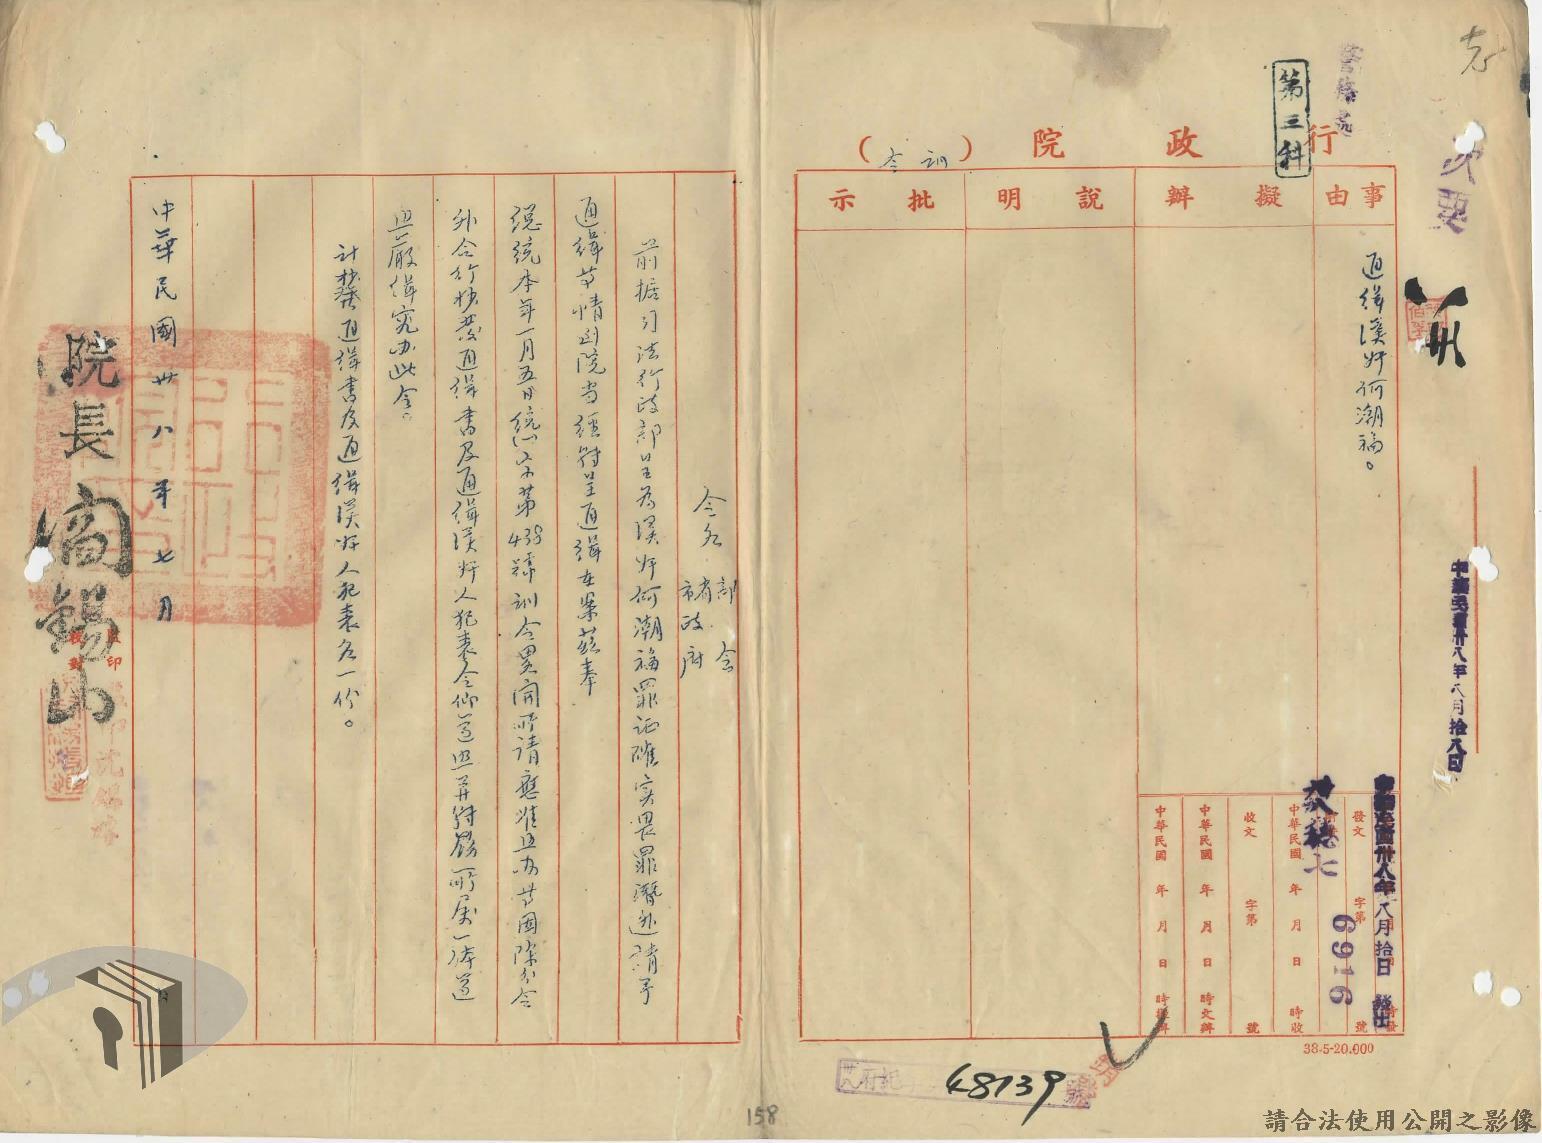 行政院（訓令）
第三科
事由
擬辦
說明
批示
通緝漢奸何潮福。
中華民國卅八年八月拾八日
中華民國卅八年八月拾日 發出
發文 字第 號
6916
中華民國 年 月 日 時收
收文 字第 號
中華民國 年 月 日 時交辦
中華民國 年 月 日 時擬辦
38-5-20.000
48139
令各部會
省市政府
前据司法行政部呈為漢奸何潮福罪証確实畏罪潛逃請予
通緝等情到院当經轉呈通緝在案茲奉
總統本年一月五日統
第438號訓令畧開所請應准照办等因除分令
外合行抄發通緝書及通緝漢奸人犯表令仰遵照并轉飭所属一体遵
照嚴緝究办此令。
計抄發通緝書及通緝漢奸人犯表各一份。
院長閻錫山
中華民國卅八年七月 日
監印
校對
158
請合法使用公開之影像